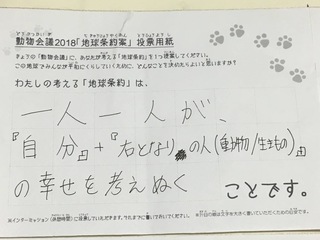 動物会議2018「地球条約案」投票用紙
チェコの「動物会議」に、あなたが考える「地球条約」を1つ提案してください。
この地球でみんなが平和にくらしていくために、どんなことを決めたらよいと思いますか?
わたしの考える「地球条約」は、
一人一人が、
『自分』+『右となりの人(動物/生きもの)』
の幸せを考えぬく
ことです。